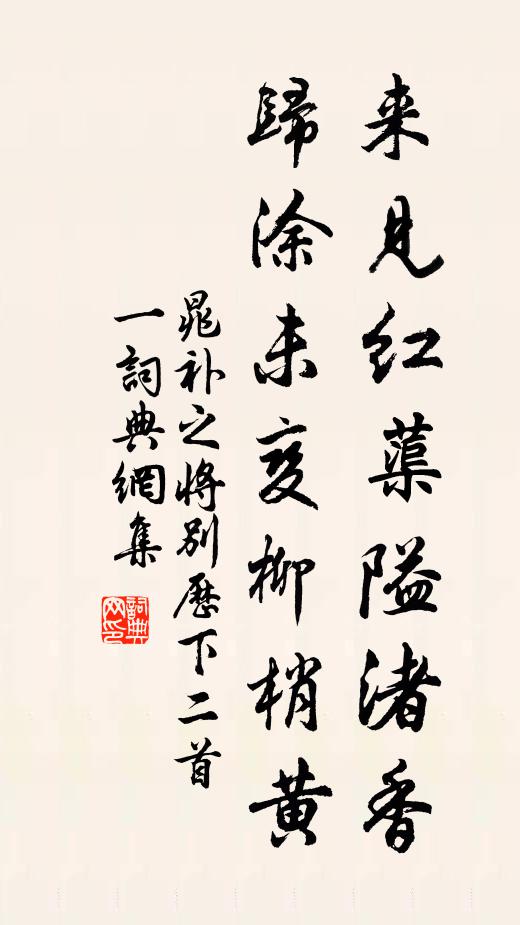 来见红蕖隘渚香
歸涂未变柳梢黄
晁补之将别歷下二首
一詞典網集
詞典網印